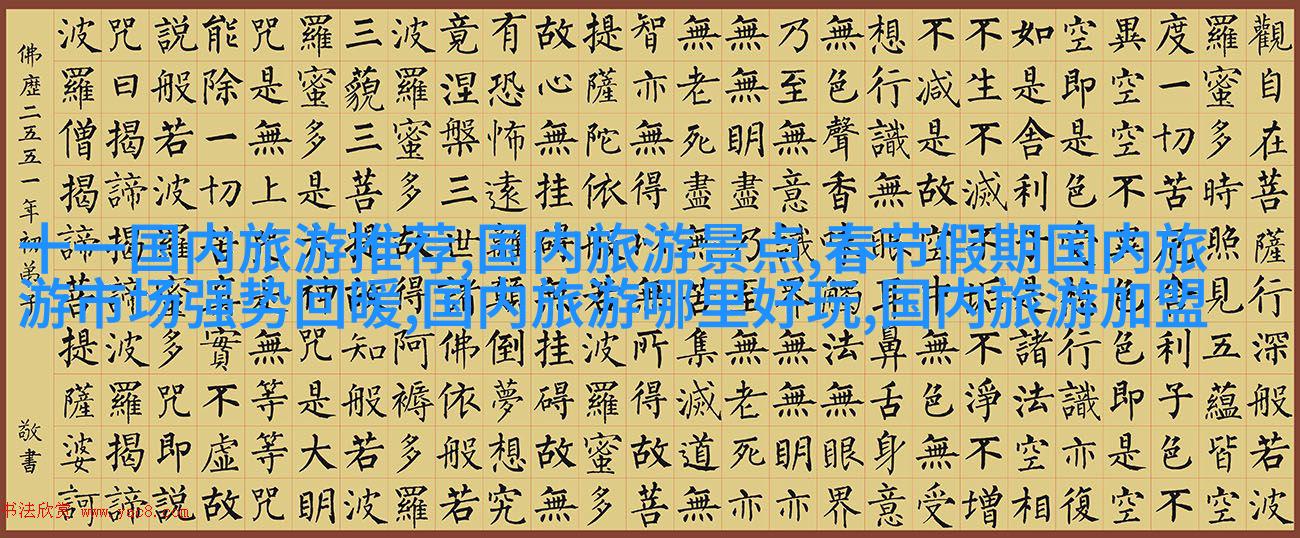 觀自在菩薩行深般若波
羅蜜多時照見五蘊皆空
度一切苦厄舍利子色不
異空空不異色色即是空
空即是色受想行識亦復
如是舍利子是諸法空相
不生不滅不垢不淨不增
不減是故空中無色無受
想行識無眼耳鼻舌身意
無色聲香味觸法無眼界
乃至無意識界無無明亦
無無明盡乃至無老死亦
無老死盡無苦集滅道無
智亦無得以無所得故菩
提薩陀依般若波羅蜜多
故心無挂礙無挂礙故無
有恐怖遠離顛倒夢想究
竟涅槃三世諸佛依般若
波羅蜜多故得阿褥多羅
三藐三菩提故知般若波
羅蜜多是大神咒是大明
咒是無上咒是無等等咒
能除一切苦真實不虛故
說般若波羅蜜多咒即說
咒曰揭諦揭諦波羅揭諦
波羅僧揭諦菩提薩婆訶
佛歷二五五一年初弟子
敬書
十一国内旅游推荐,国内旅游景点,春节假期国内旅
游市场强势回暖,国内旅游哪里好玩,国内旅游加盟
书法欣赏 www.yac8.com